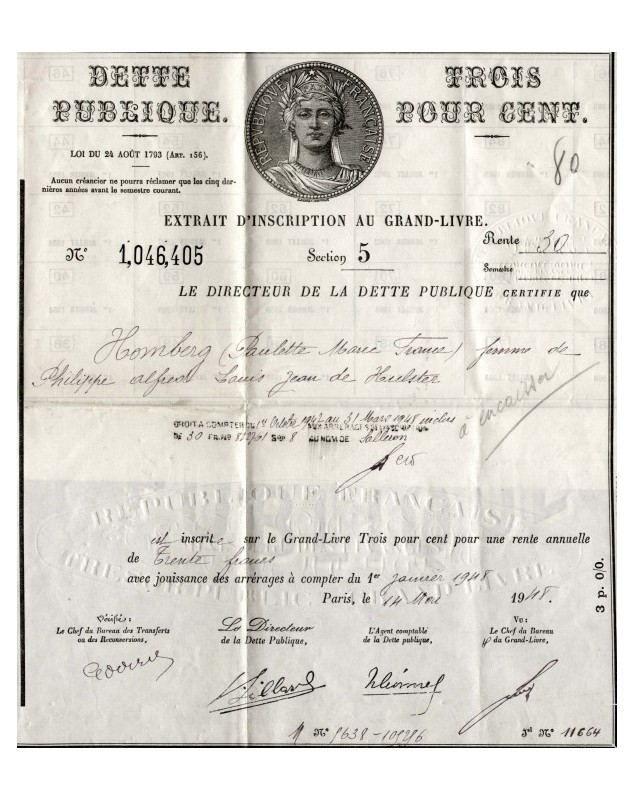 DETTE PUBLIQUE.
RÉPVBLIQVE FRANÇAISE
TROIS POUR CENT.
LOI DU 24 AOÛT 1793 (ART. 156).
Aucun créancier ne pourra réclamer que les cinq der-
nières années avant le semestre courant.
80
EXTRAIT D'INSCRIPTION AU GRAND-LIVRE.
N° 1,046,405
Section 5
Rente 30
Semestre
LE DIRECTEUR DE LA DETTE PUBLIQUE CERTIFIE que
Homberg (Paulette Marie France) femme de
Philippe Alfred Louis Jean de Hulster
à encaisser
DROIT A COMPTER DU 1er Octobre 1947 au 31 Mars 1948 inclus AUX ARRERAGES DE L'INSCRIPTION
DE 30 FR. N° Son 8 AU NOM DE
RÉPUBLIQUE FRANÇAISE
est inscrite sur le Grand-Livre Trois pour cent pour une rente annuelle
de Trente francs
avec jouissance des arrérages à compter du 1er janvier 1948
Paris, le 14 Mai 1948.
3 p. 0/0.
Vérifiés:
Le Chef du Bureau des Transferts
ou des Reconversions,
Le Directeur
de la Dette Publique,
L'Agent comptable
de la Dette publique,
Vu:
Le Chef du Bureau
du Grand-Livre,
N° 9638-109296
Jal N° 11664